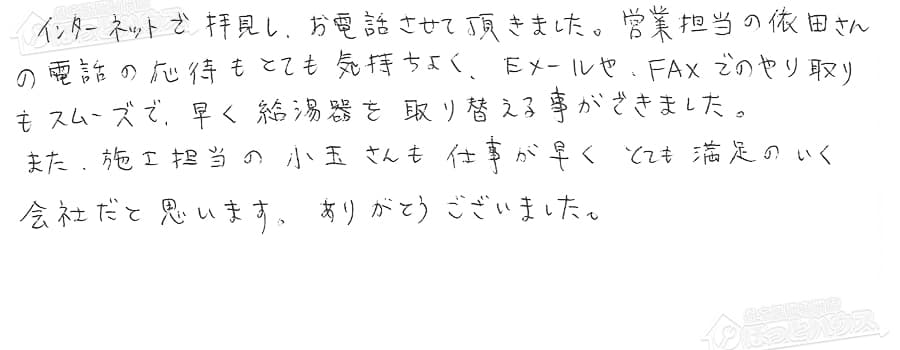 インターネットで拝見し、お電話させて頂きました。営業担当の依田さん
の電話の応待もとても気持ちよく、Eメールや、FAXでのやり取り
もスムーズで、早く給湯器を取り替える事ができました。
また、施工担当の小玉さんも仕事が早くとても満足のいく
会社だと思います。ありがとうございました。